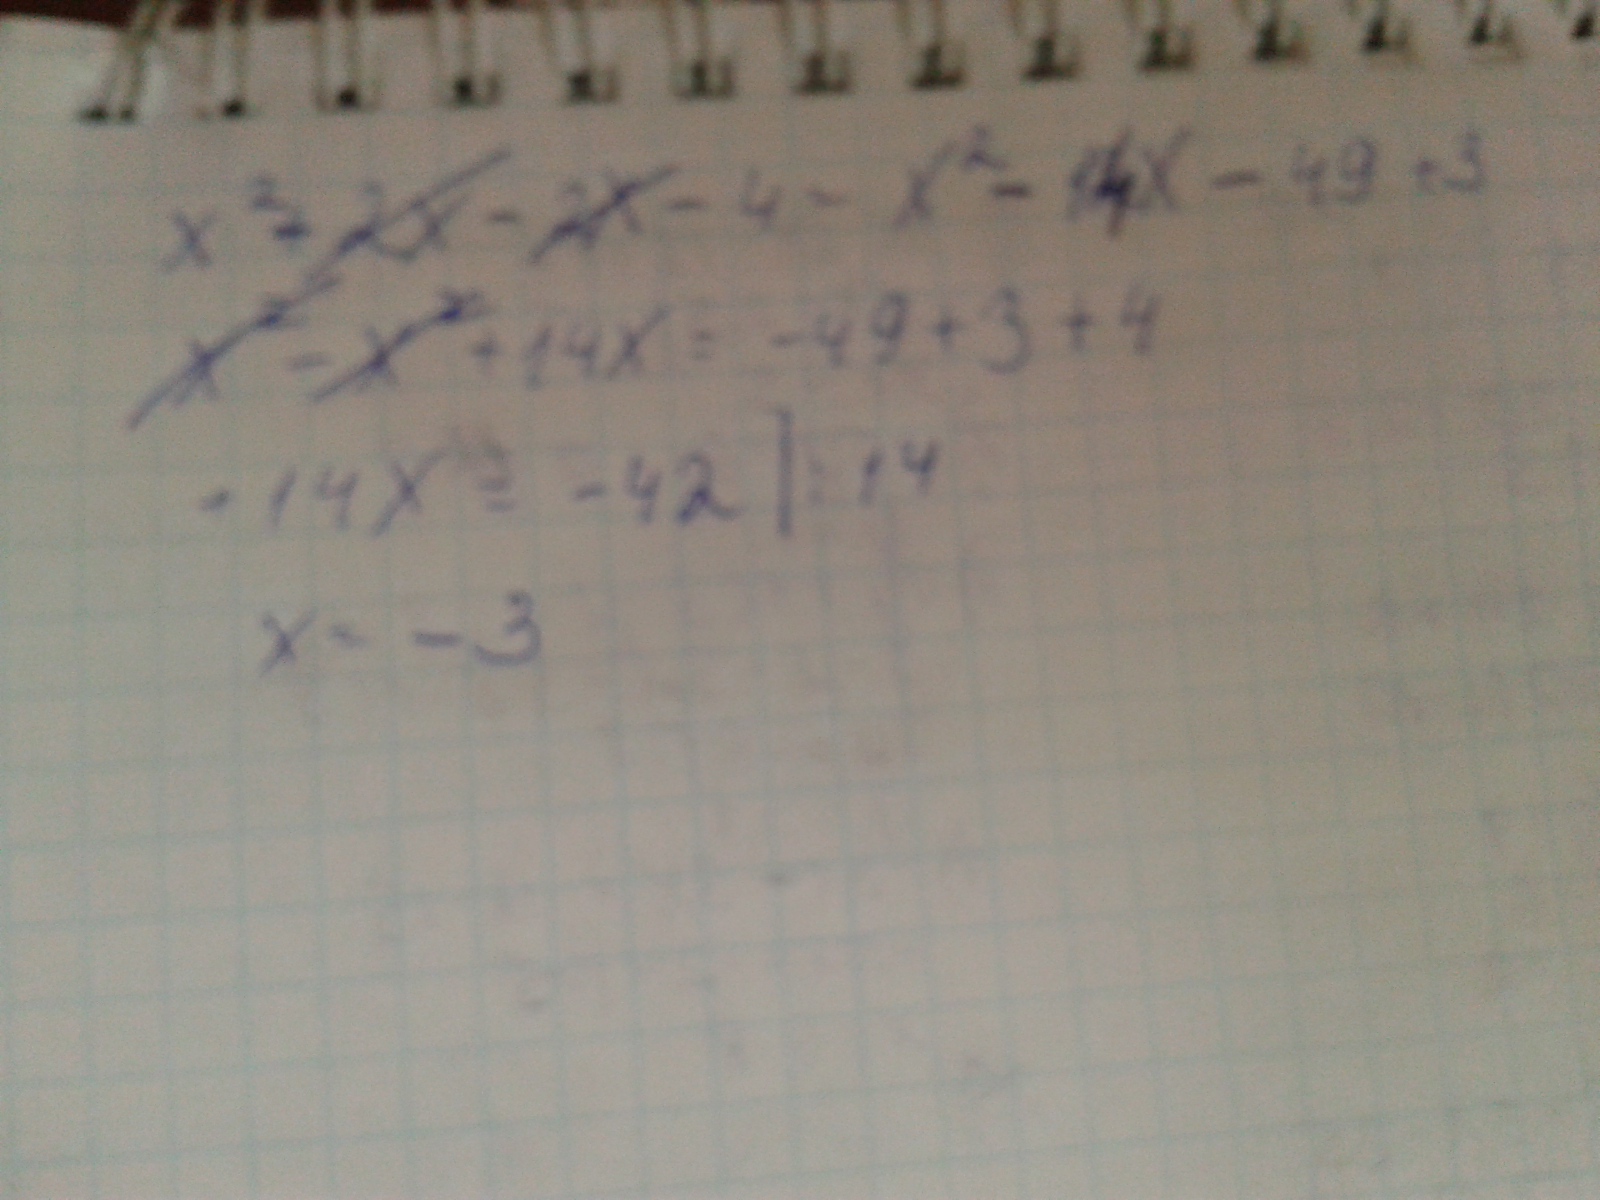 x² + 2x - 2x - 4 = x² - 14x - 49 + 3
x² - x² + 14x = -49 + 3 + 4
14x = -42 | : 14
x = -3